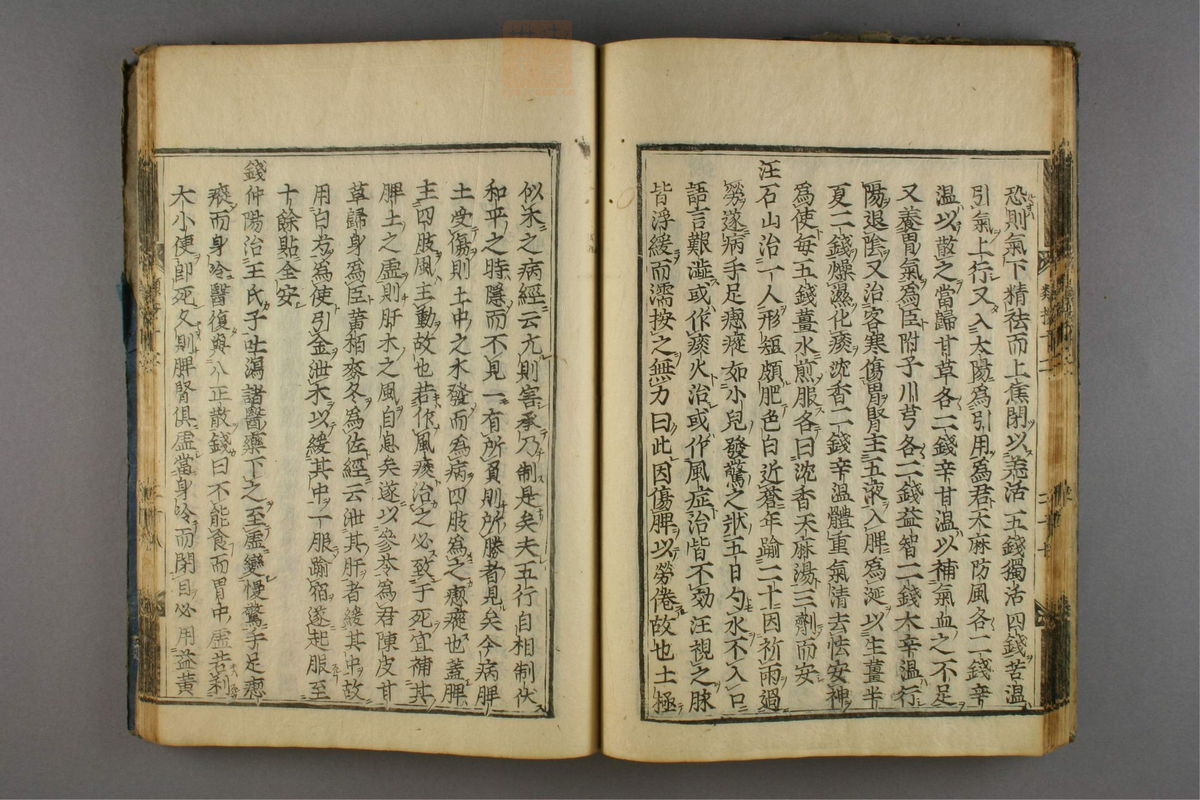 恐則氣下精祛而上焦閉以羌活五錢獨活四錢苦溫
引氣上行又入太陽爲引用爲君天麻防風各二錢辛
溫以散之當歸甘草各二錢辛甘溫以補氣血之不足
又養胃氣爲臣附子川芎各二錢益智二錢大辛溫行
陽退陰又治客寒傷胃腎主五液入脾爲涎以生薑半
夏二錢燥濕化痰沈香二錢辛溫體重氣清去怯安神
爲使每五錢薑水煎服各曰沈香天麻湯三劑而安
汪石山治一人形短頗肥色白近蒼年踰二十因祈雨過
勞遂病手足瘛瘲如小兒發驚之狀五日勺水不入口
語言艱澁或作痰火治或作風症治皆不効汪視之脉
皆浮緩而濡按之無力曰此因傷脾以勞倦故也土極
似木之病經云亢則害承乃制是矣夫五行自相制伏
和平之時隱而不見一有所負則所勝者見矣今病脾
土受傷則土中之木發而爲病四肢爲之瘛瘲也蓋脾
主四肢風主動故也若作風痰治之必致于死宜補其
脾土之虛則肝木之風自息矣遂以參芪爲君陳皮甘
草歸身爲臣黃栢麥冬爲佐經云泄其肝者緩其中故
用白芍爲使引金泄木以緩其中一服踰宿遂起服至
十餘貼全安
錢仲陽治王氏子吐瀉諸醫藥下之至虛變慢驚手足瘛
瘲而身冷醫復與八正散錢曰不能食而胃中虛若利
大小便即死久則脾腎俱虛當身冷而閉目必用益黃